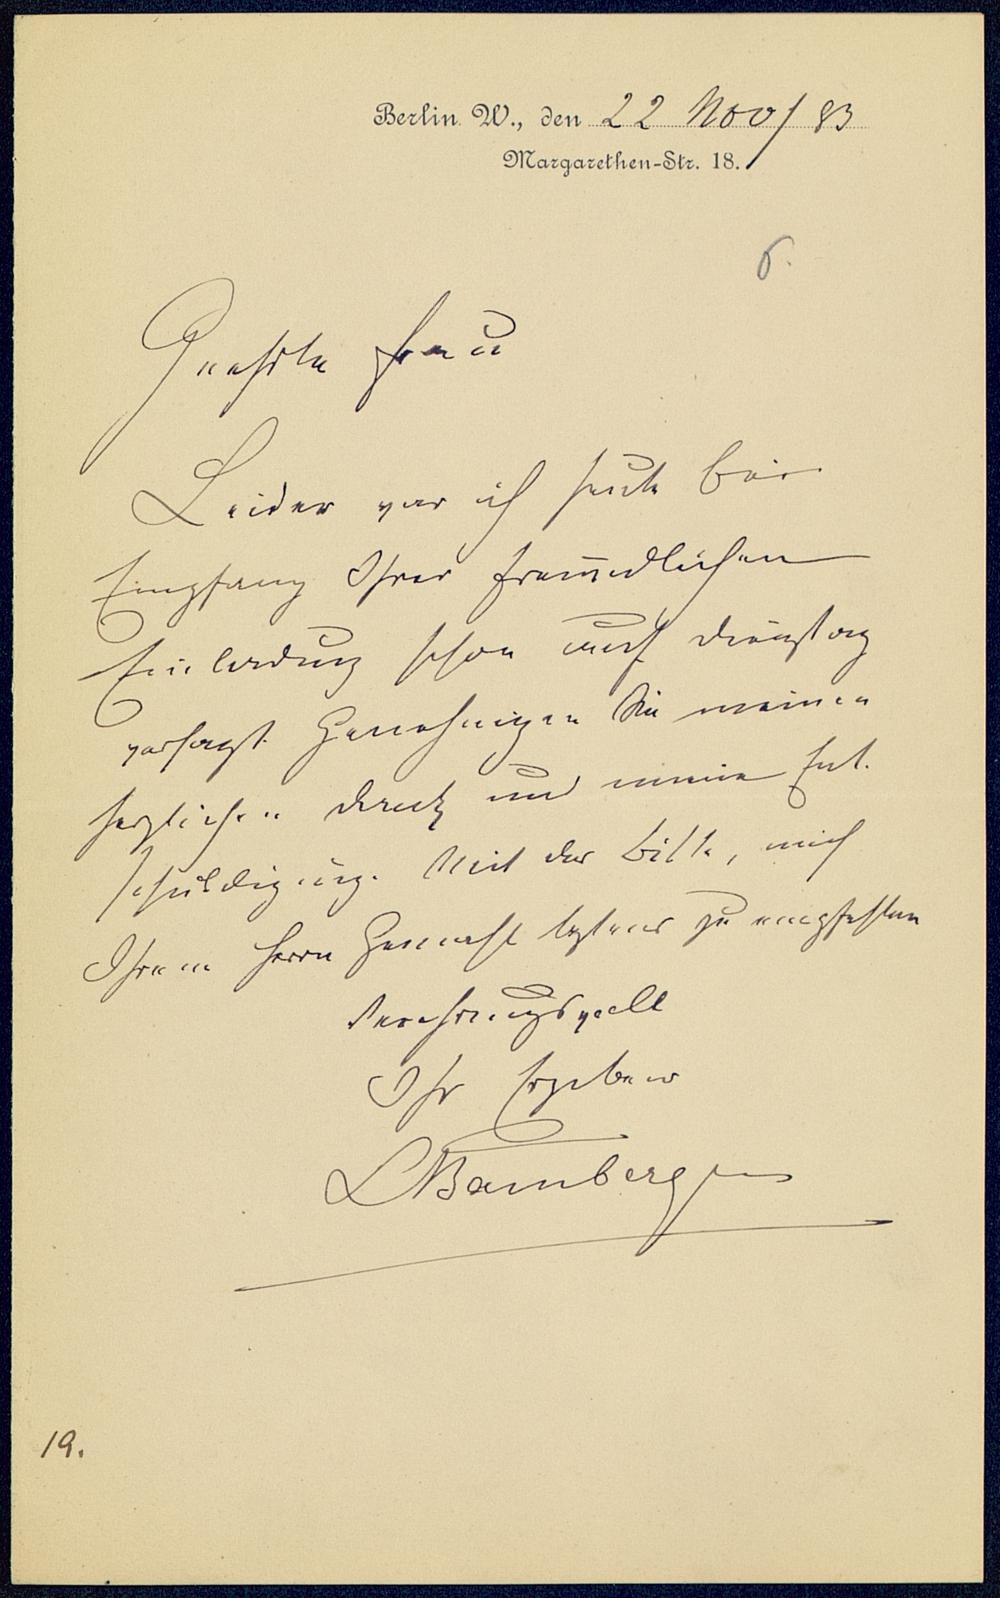 Berlin W., den 22 Nov/83
Margarethen-Str. 18.
6.
Geehrte Frau
Leider war ich heute beim
Empfang Ihrer freundlichen
Einladung schon auf Dienstag
versagt. Genehmigen Sie meinen
herzlichen Dank und meine Ent-
schuldigung. Mit der Bitte, mich
Ihrem Herrn Gemahl bestens zu empfehlen
Verehrungsvoll
Ihr Ergebener
LBamberger
19.